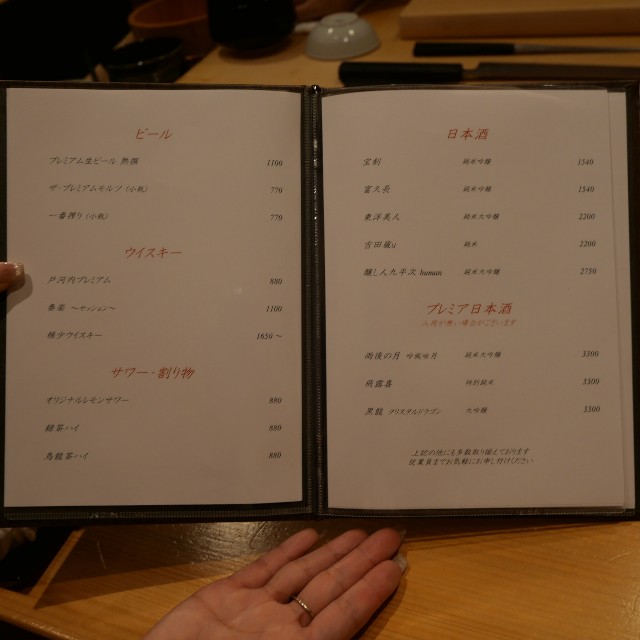 ビール
プレミアム生ビール 熟撰 1100
ザ・プレミアムモルツ（小瓶） 770
一番搾り（小瓶） 770
ウイスキー
戸河内プレミアム 880
奏楽 〜セッション〜 1100
稀少ウイスキー 1650〜
サワー・割り物
オリジナルレモンサワー 880
緑茶ハイ 880
烏龍茶ハイ 880
日本酒
宝剣 純米吟醸 1540
富久長 純米吟醸 1540
東洋美人 純米大吟醸 2200
吉田蔵u 純米 2200
醸し人九平次 human 純米大吟醸 2750
プレミア日本酒
入荷が無い場合がございます
雨後の月 吟風咏月 純米大吟醸 3300
飛露喜 特別純米 3300
黒龍 クリスタルドラゴン 大吟醸 3300
上記の他にも多数取り揃えております
従業員までお気軽にお申し付けください